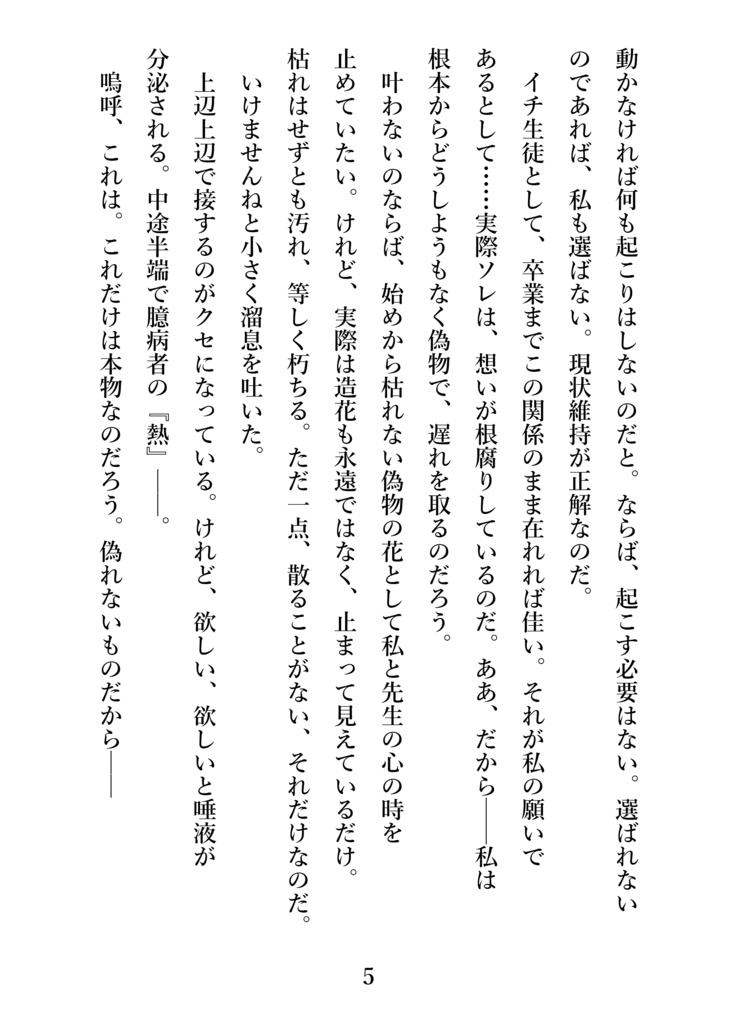 動かなければ何も起こりはしないのだと。ならば、起こす必要はない。選ばれない
のであれば、私も選ばない。現状維持が正解なのだ。
　イチ生徒として、卒業までこの関係のまま在れれば佳い。それが私の願いで
あるとして……実際ソレは、想いが根腐りしているのだ。ああ、だから――私は
根本からどうしようもなく偽物で、遅れを取るのだろう。
　叶わないのならば、始めから枯れない偽物の花として私と先生の心の時を
止めていたい。けれど、実際は造花も永遠ではなく、止まって見えているだけ。
枯れはせずとも汚れ、等しく朽ちる。ただ一点、散ることがない、それだけなのだ。
　いけませんねと小さく溜息を吐いた。
　上辺上辺で接するのがクセになっている。けれど、欲しい、欲しいと唾液が
分泌される。中途半端で臆病者の『熱』――。
　嗚呼、これは。これだけは本物なのだろう。偽れないものだから――
5